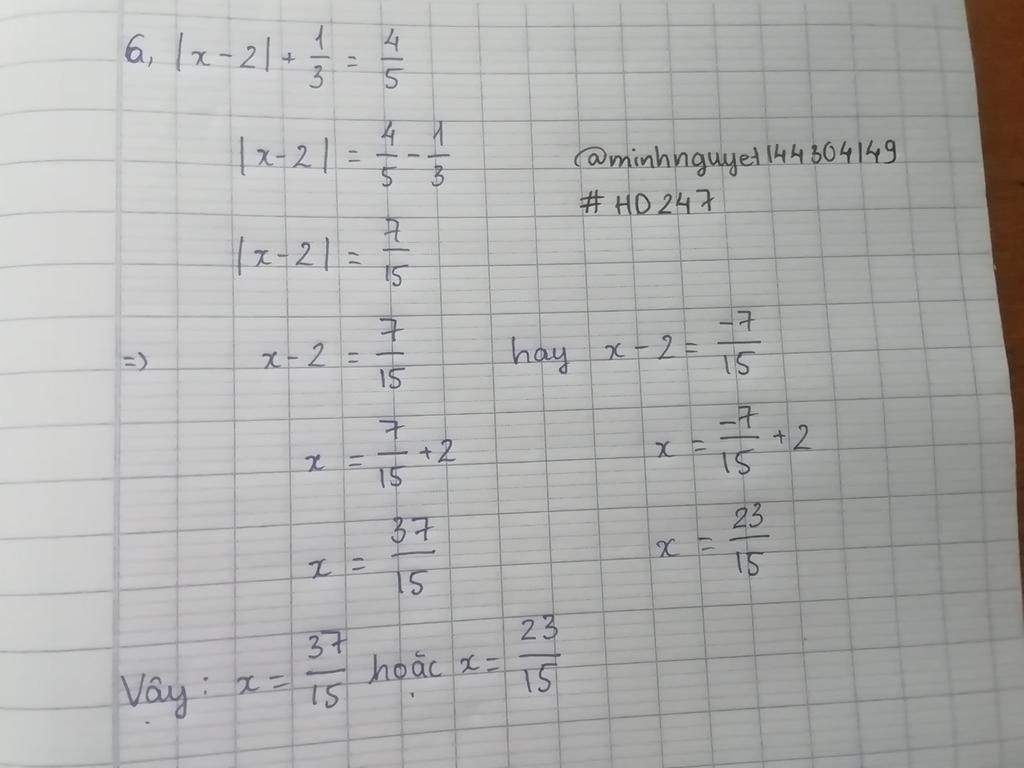 6a, |x-2| + 1/3 = 4/5
|x-2| = 4/5 - 1/3
@minhnguyet144304149
# HD247
|x-2| = 7/15
=> x-2 = 7/15 hay x-2 = -7/15
x = 7/15 + 2 x = -7/15 + 2
x = 37/15 x = 23/15
Vậy: x = 37/15 hoặc x = 23/15